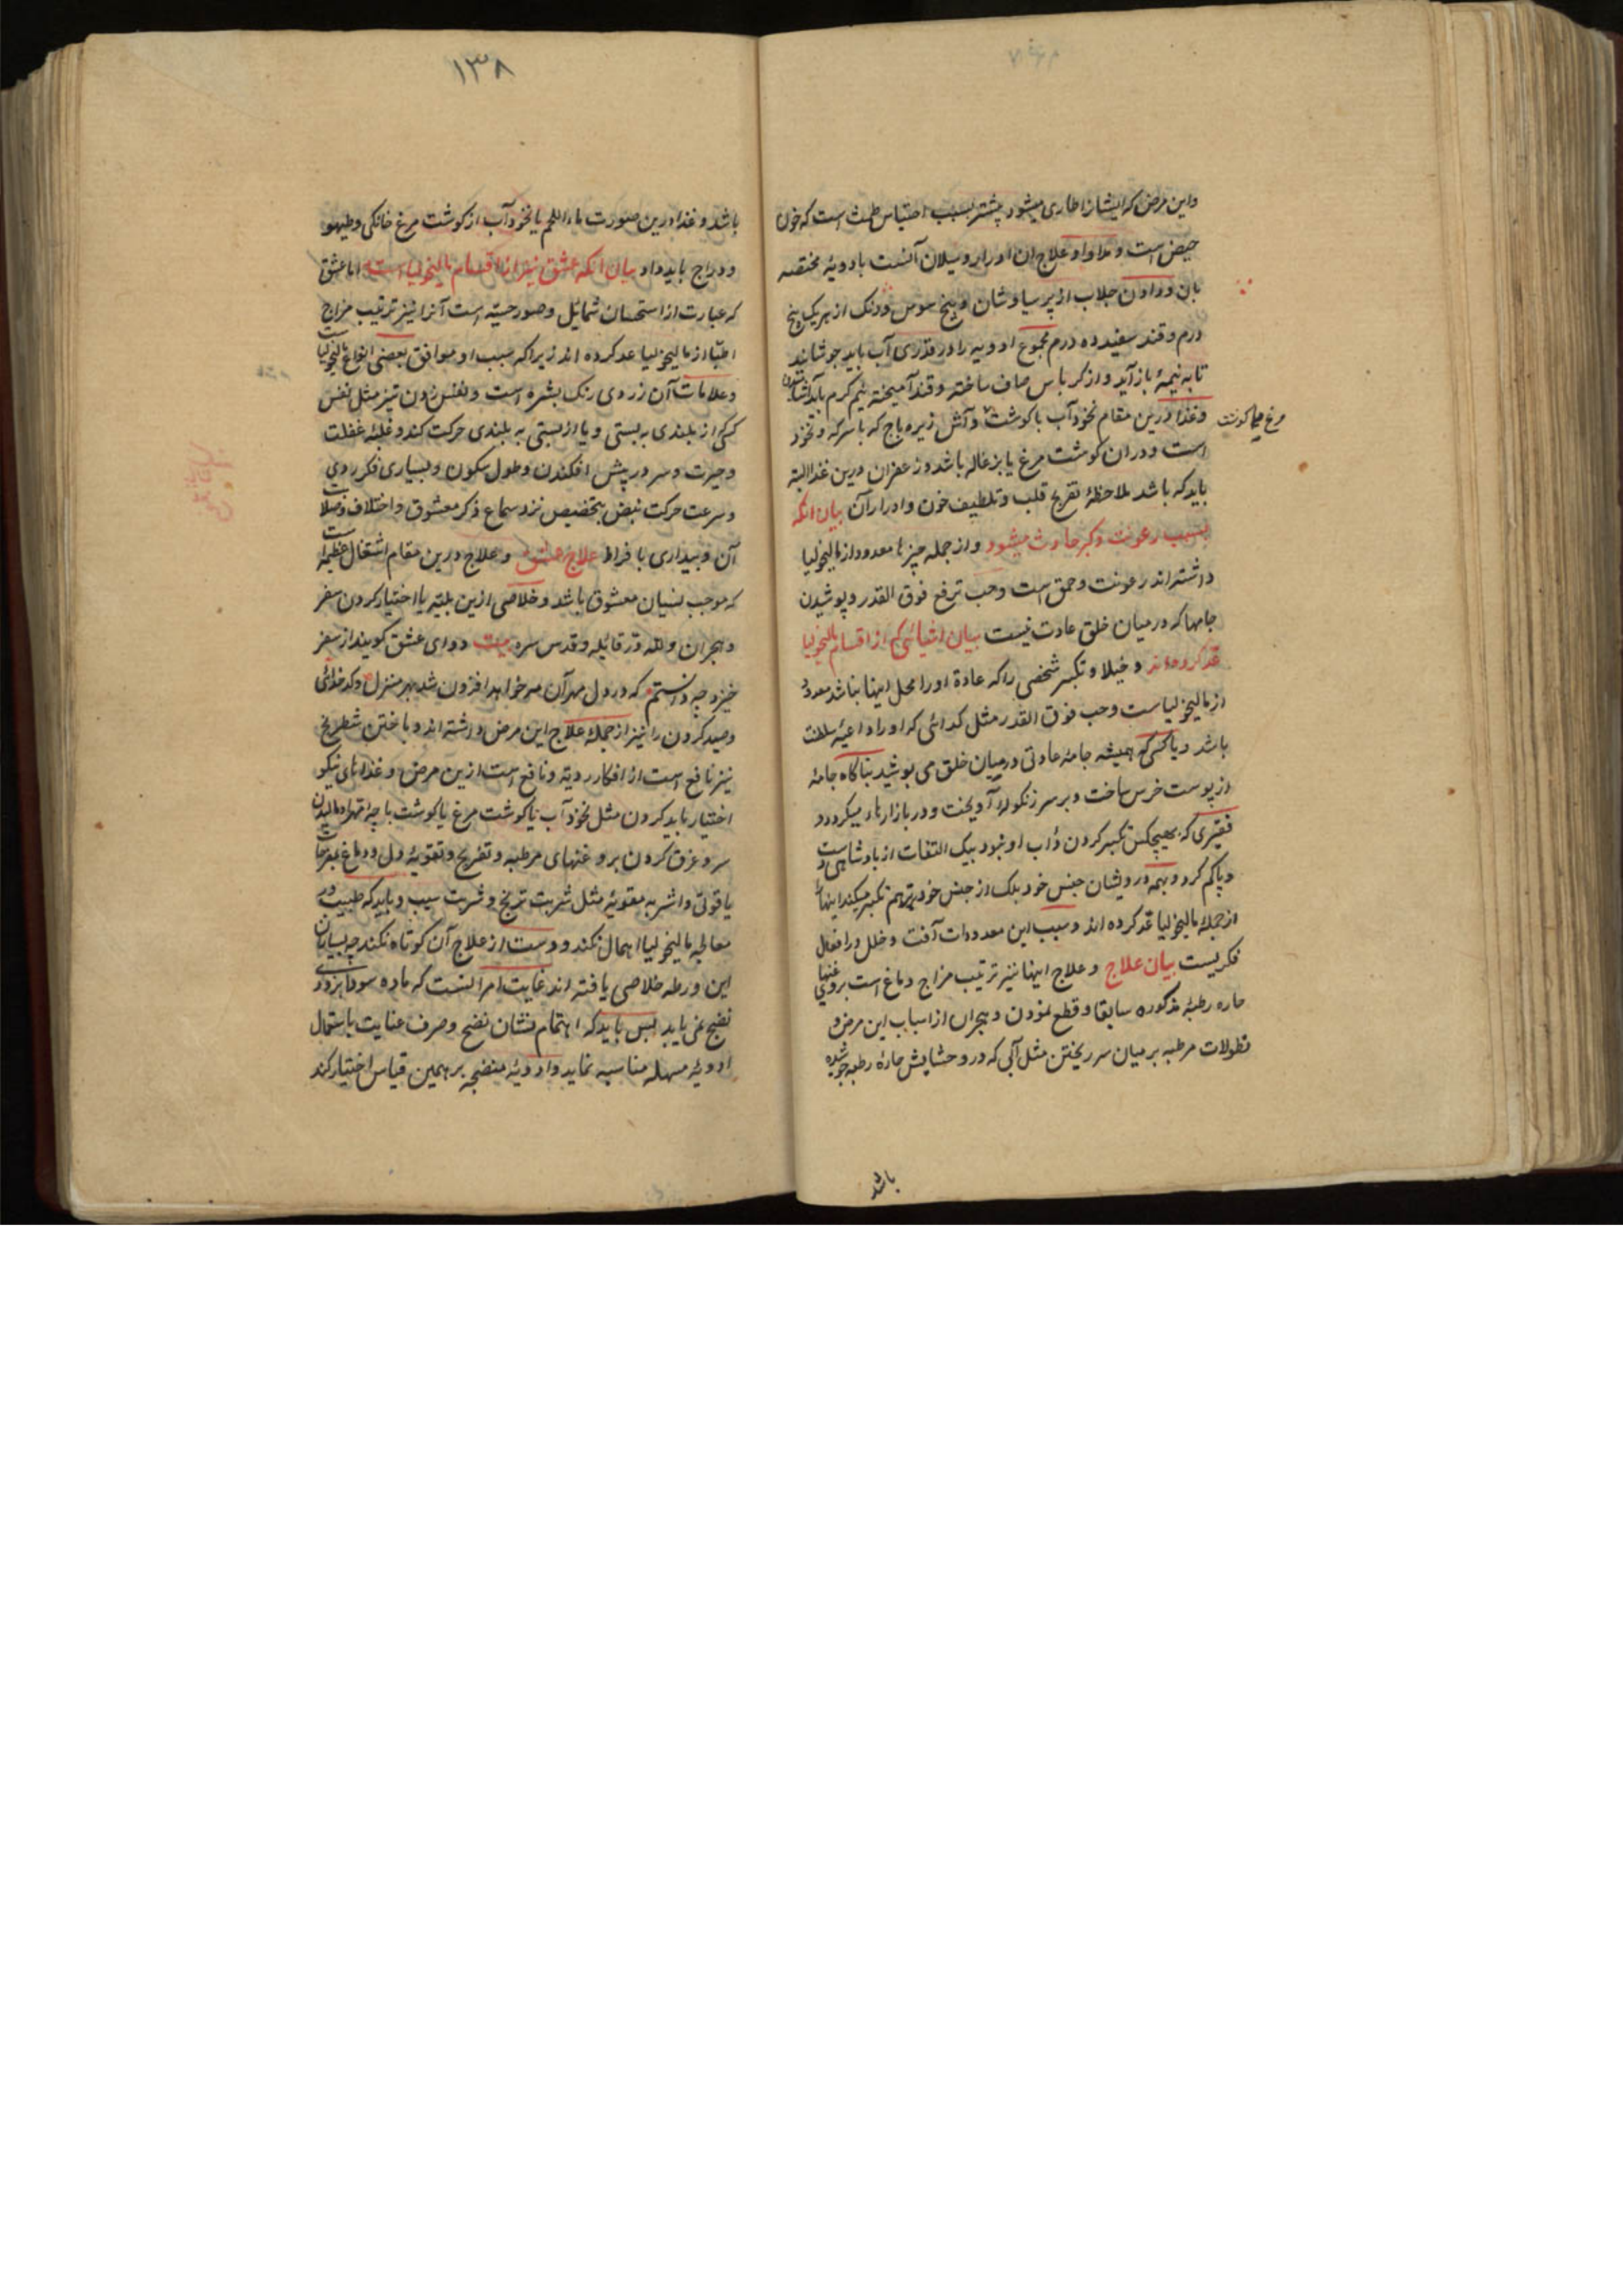 واین مرض که ایشانرا طاری میشود پیشتر بسبب احتباس طمث است که خون
حیض است و مداوا و علاج ان ادرار و سیلان آنست بادویهٔ مختصه
بان و دادن جلاب از پرسیاوشان و بیخ سوس و دنک از هریک پنج
درم و قند سفید ده درم مجموع ادویه را در قدری آب باید جوشانید
تا به نیمهٔ باز آید و از کرباس صاف ساخته و قند آمیخته نیم کرم باید
وغذا درین مقام نخودآب با کوشت و آش زیره باج که با سرکه و نخود
است و دران کوشت مرغ یا بزغاله باشد و زعفران درین غذا البته
باید که باشد ملاحظهٔ تفریح قلب و تلطیف خون و ادرار آن بیان انکه
بسبب رعونت و کبر حادث میشود و از جمله چیزها معدود از مالیخولیا
داشته اند رعونت و حمق است وحب ترفع فوق القدر و پوشیدن
جامها که در میان خلق عادت نیست بیان اشیائی که از اقسام مالیخولیا
عد کرده اند و خیلا و تکبر شخصی را که عادة او را محل اینها نباشد معدود
از مالیخولیاست وحب فوق القدر مثل کدائی که او را داعیهٔ سلطنت
باشد و یا کسی که همیشه جامهٔ عادتی در میان خلق می پوشید بناکاه جامهٔ
از پوست خرس ساخت و بر سر زنکولها آویخت و در بازارها میکردد و
فقیری که بهیچکس تکبر کردن داب او نبود بیک التفات از پادشاهی
و پاکم کرد و بهمه درویشان جنس خود بلک از جنس خود برتر هم تکبر میکند اینها
از جملهٔ مالیخولیا عد کرده اند و سبب این معدودات آفت و خلل در افعال
فکریست بیان علاج و علاج اینها نیز ترتیب مزاج دماغ است بروغنهای
حاره رطبهٔ مذکوره سابقا و قطع نمودن و هجران از اسباب این مرض و
نطولات مرطبه بر میان سر ریختن مثل آبی که درو حشایش حارهٔ رطبه جوشیده
باشد
۱۳۸
باشد و غذا درین صورت ماء اللحم یا نخودآب از کوشت مرغ خانکی و طیهو
و دراج باید داد بیان انکه عشق نیز از اقسام مالیخولیا است اما عشق
که عبارت از استحسان شمائل و صور حسیّه است آنرا نیز ترتیب مزاج
اطبّا از مالیخولیا عد کرده اند زیرا که سبب او موافق بعضی انواع مالیخولیا است
وعلامات آن زردی رنک بشره است و نفس زدن تیز مثل نفس
کسی از بلندی به پستی و یا از پستی به بلندی حرکت کند و غلبهٔ غفلت
وحیرت و سر در پیش افکندن و طول سکون و بسیاری فکر ردی
وسرعت حرکت نبض بتخصیص نزد سماع ذکر معشوق و اختلاف و صلابت
آن و بیداری با فراط علاج عشق و علاج درین مقام اشتغال عظیم است
که موجب نسیان معشوق باشد و خلاصی ازین بلیّه یا اختیار کردن سفر
وهجران ولله در قائله و قدس سره بیت دوای عشق کویند از سفر
خیزد چه دانستم که در دل مهر آن مه خواهد افزون شد بهر منزل و کدخدائی
وصید کردن را نیز از جملهٔ علاج این مرض داشته اند و باختن شطرنج
نیز نافع است از افکار ردیّه و نافع است ازین مرض و غذاهای نیکو
اختیار باید کردن مثل نخودآب با کوشت مرغ یا کوشت با چه
سر و عرق کردن بروغنهای مرطبه و تفریح و تقویهٔ دل و دماغ بمفرحات
یاقوتی و اشربهٔ مقویّه مثل شربت ترنج و شربت سیب و باید که طبیب در
معالجه مالیخولیا اهمال نکند و دست از علاج آن کوتاه نکند چه بسیار از
این ورطه خلاصی یافته اند غایت امر اینست که ماده سودا بزودی
نضج نمی یابد پس باید که اهتمام نشان نضج و صرف عنایت باستعمال
ادویهٔ مسهله مناسبه نماید و ادویهٔ منضجه بر همین قیاس اختیار کند